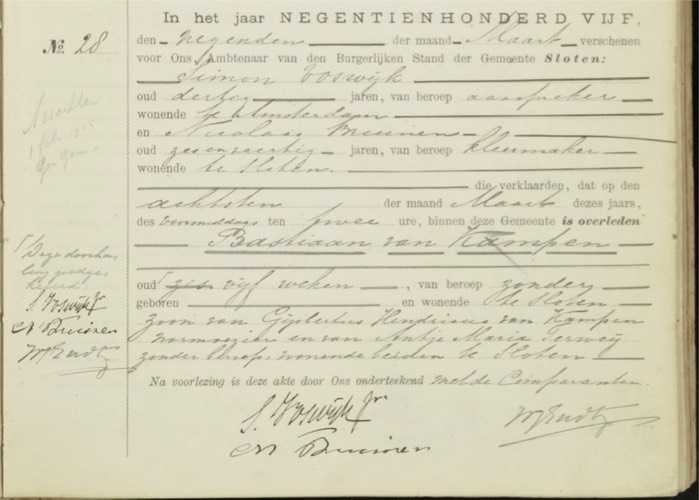 In het jaar NEGENTIENHONDERD VIJF,
No. 28
den negenden der maand Maart verschenen
voor Ons Ambtenaar van den Burgerlijken Stand der Gemeente Sloten:
Simon Voswijk
oud dertig jaren, van beroep aanspreker
wonende te Amsterdam
en Nicolaas
oud zesenveertig jaren, van beroep kleermaker
wonende te Sloten.
die verklaarden, dat op den
achtsten der maand Maart dezes jaars,
des voormiddags ten twee ure, binnen deze Gemeente is overleden
Bastiaan van Kampen
oud zes vijf weken, van beroep zonder
geboren en wonende te Sloten
zoon van Gijsbertus Hendricus van Kampen
en van Antje Maria Terweij
zonder beroep, wonende beiden te Sloten
Na voorlezing is deze akte door Ons onderteekend met de Comparanten.
S. Voswijk Jr
N
Deze doorha-
ling goedge-
keurd.
S. Voswijk Jr
N